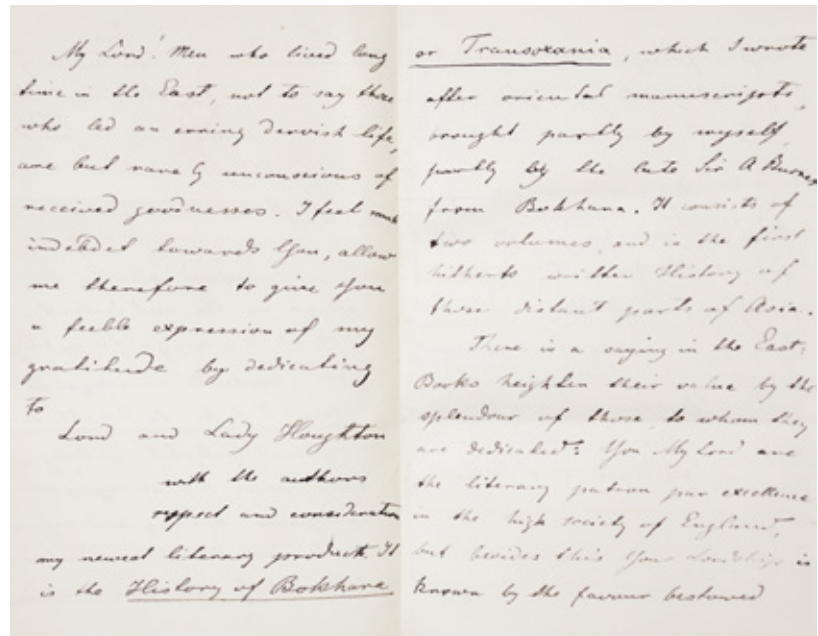 My Lord! Men who lived long
time in the East, not to say those
who led an erring dervish life,
are but rarely unconscious of
received goodnesses. I feel much
indebdet towards You, allow
me therefore to give You
a feeble expression of my
gratitude by dedicating
to
Lord and Lady Houghton
with the authors
respect and consideration
my newest literary product. It
is the History of Bokhara
or Transoxania, which I wrote
after oriental manuscripts,
brought partly by myself,
partly by the late Sir A Burnes
from Bokhara. It consists of
two volumes, and is the first
hitherto written History of
those distant parts of Asia.
There is a saying in the East:
Books heighten their value by the
splendour of those, to whom they
are dedicated: You My Lord are
the literary patron par excellence
in the high society of England,
but besides this Your Lordship is
known by the favour bestowed